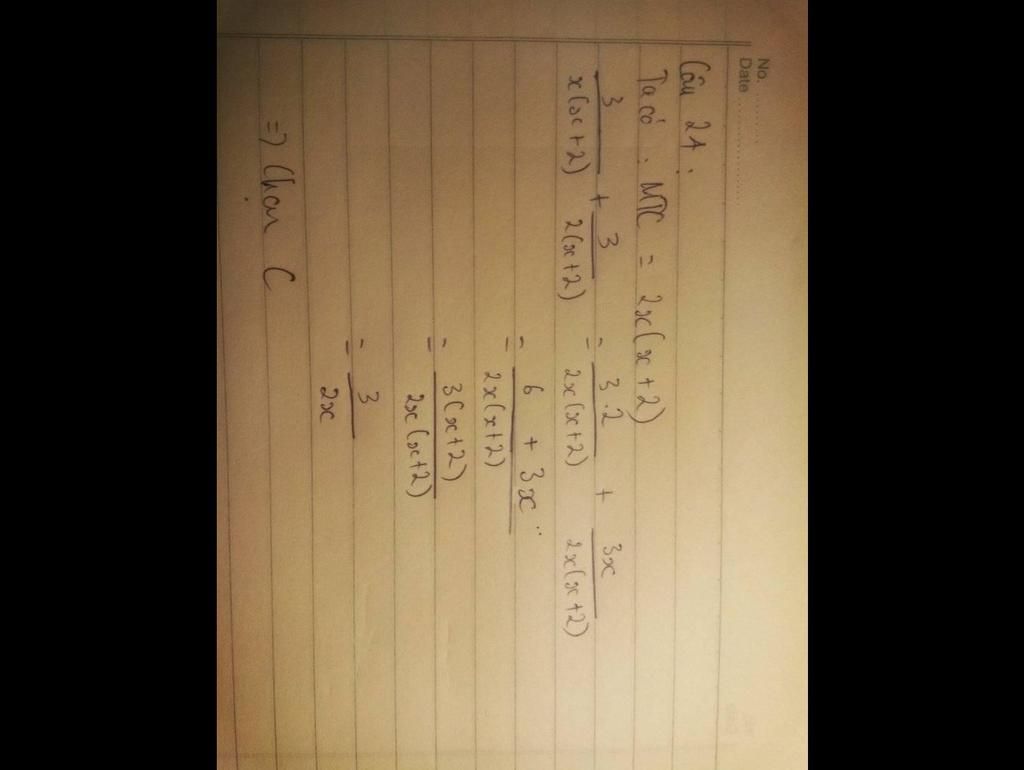 No. ..........
Date ....................
Câu 24 :
Ta có : MTC = 2x(x+2)
3/x(x+2) + 3/2(x+2) = 3.2/2x(x+2) + 3x/2x(x+2)
= 6 + 3x/2x(x+2)
= 3(x+2)/2x(x+2)
= 3/2x
=> Chọn C